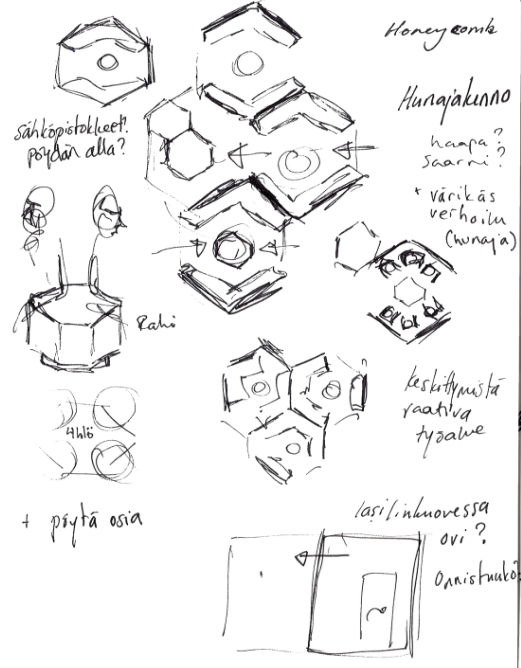 Honeycomb
Hunajakenno
haapa?
saarni?
+ värikäs
verhoilu
(hunaja)
Sähköpistokkeet?
pöydän alla?
Rahi
4hlö
+ pöytä osia
keskittymistä
vaativa
työalue
lasiliukuovessa
ovi?
Onnistuuko?